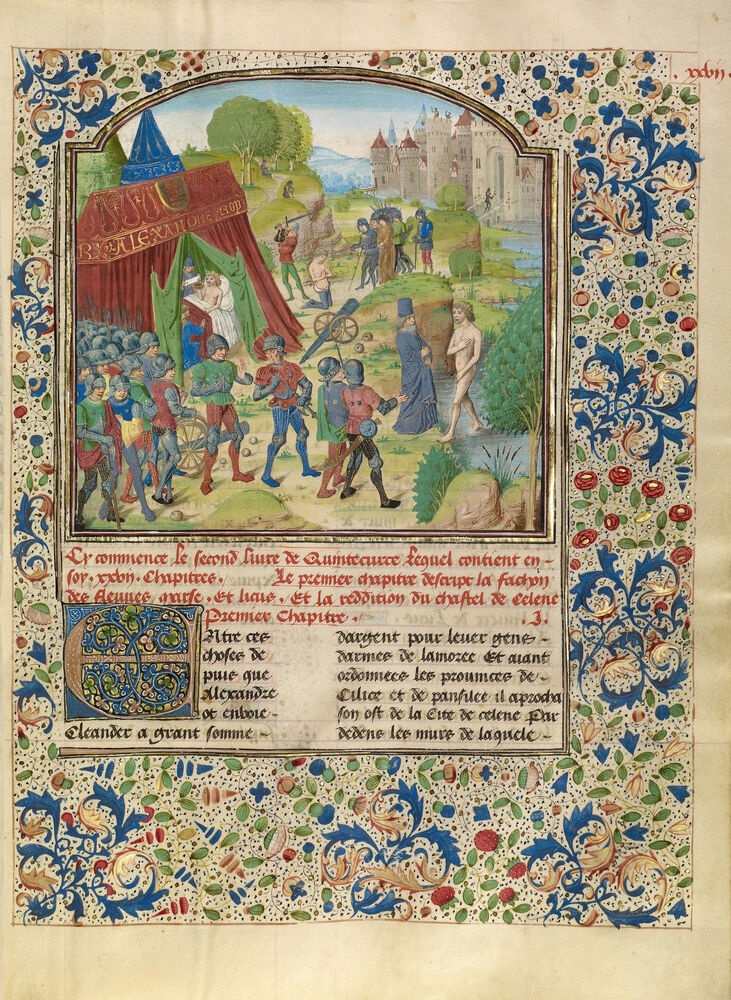 .xxvij.
ALEXANDRE
Cy commence le second livre de Quintecurce lequel contient en-
soy .xxvij. Chapitres. Le premier chapitre descript la fachon
des fleuves marse . Et licius . Et la reddition du chastel de Celene
Premier Chapitre . .I.
Entre ces
choses de
puis que
Alexandre
ot envoie
Cleander a grant somme
dargent pour lever gens
darmes de lamoree Et aiant
ordonnees les provinces de
Cilice et de panfilee il aprocha
son ost de la Cite de celene Par
dedens les murs de laquele